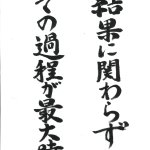 結果に関わらず
ての過程が最大